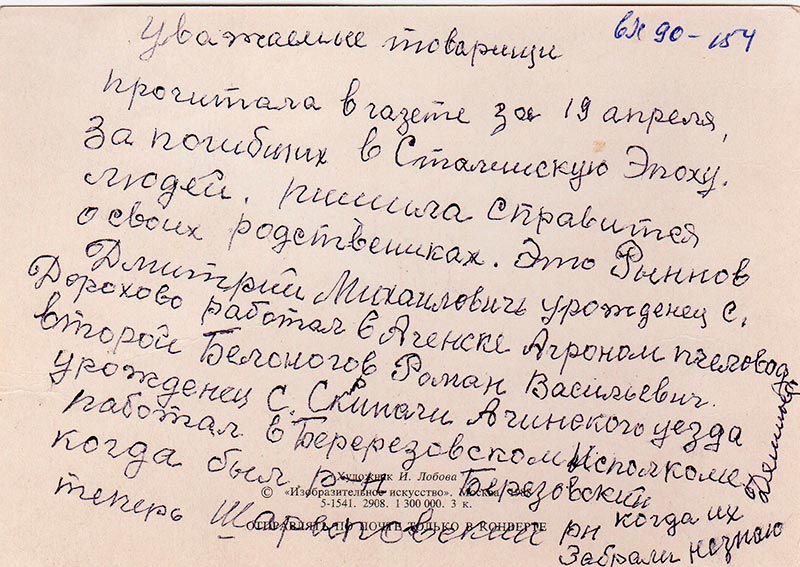 вх 90-154
Уважаемые товарищи
прочитала в газете за 19 апреля,
за погибших в Сталинскую Эпоху.
людей. ришила справится
о своих родствениках. Это Рыннов
Дмитрий Михаиловичь урожденец с.
Дорохово работал в Аченске Агроном пчеловод
второй Белоногов Роман Васильевич.
урожденец С. Скрипачи Ачинского уезда
работал в Березовском Исполкоме.
когда был р-н Березовский
Художник И. Лобова
© «Изобразительное искусство». Москва.
5-1541. 2908. 1 300 000. 3 к.
теперь Шарыповский рн когда их
ОТПРАВЛЯТЬ ПО ПОЧТЕ ТОЛЬКО В КОНВЕРТЕ
Забрали незнаю